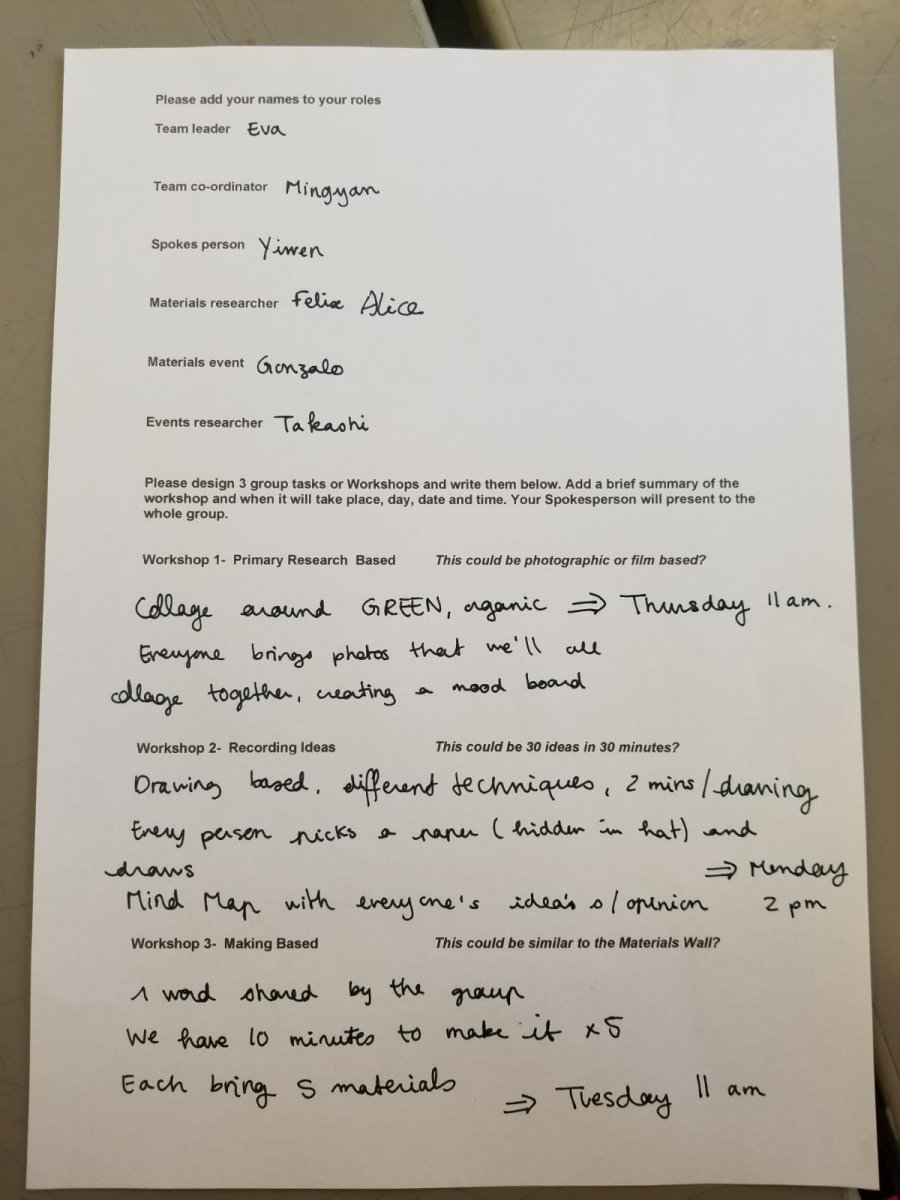 Please add your names to your roles
Team leader Eva
Team co-ordinator Mingyan
Spokes person Yiwen
Materials researcher Felix Alice
Materials event Gonzalo
Events researcher Takashi
Please design 3 group tasks or Workshops and write them below. Add a brief summary of the
workshop and when it will take place, day, date and time. Your Spokesperson will present to the
whole group.
Workshop 1- Primary Research Based This could be photographic or film based?
Collage around GREEN, organic ⇒ Thursday 11 am.
Everyone brings photos that we'll all
collage together, creating a mood board
Workshop 2- Recording Ideas This could be 30 ideas in 30 minutes?
Drawing based, different techniques, 2 mins/drawing
Every person picks a paper (hidden in hat) and
draws ⇒ Monday
Mind Map with everyone's idea's /opinion 2 pm
Workshop 3- Making Based This could be similar to the Materials Wall?
1 word shared by the group
We have 10 minutes to make it x5
Each bring 5 materials
⇒ Tuesday 11 am